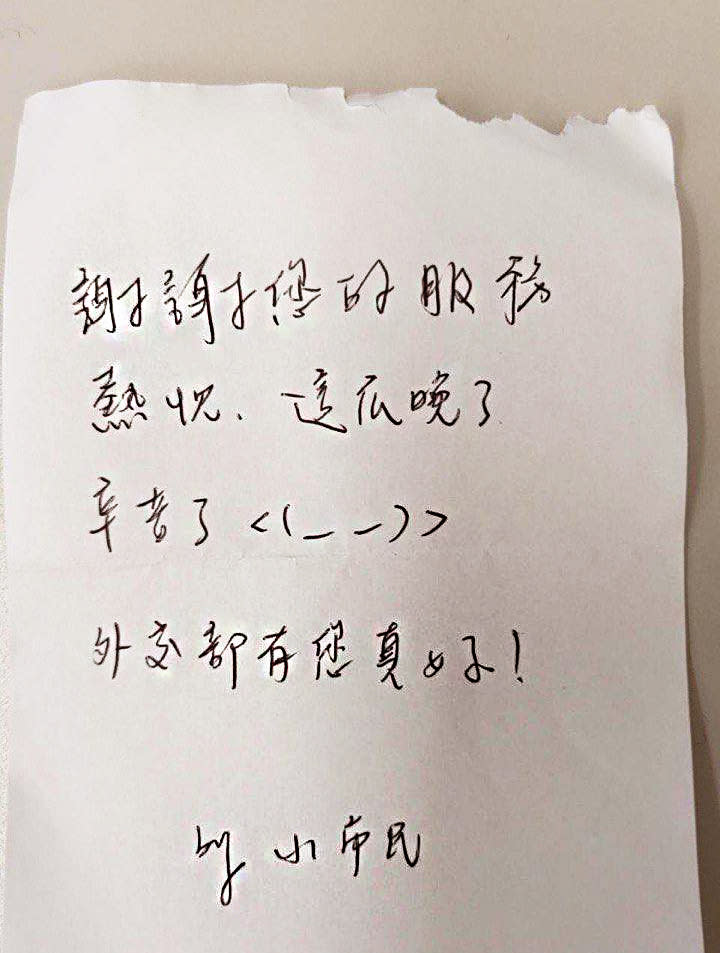 謝謝您的服務
熱忱、這麼晚了
辛苦了 <(_ _)>
外交部有您真好!
by 小市民